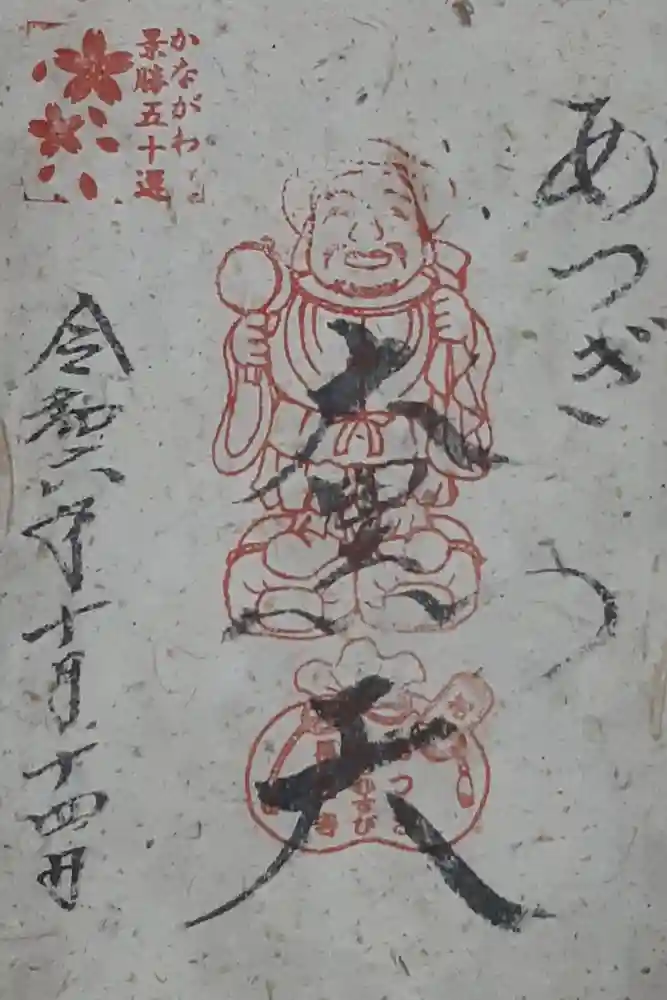 あつぎ
つ
大黒天
かながわ
景勝五十選
令和六年十月十四日